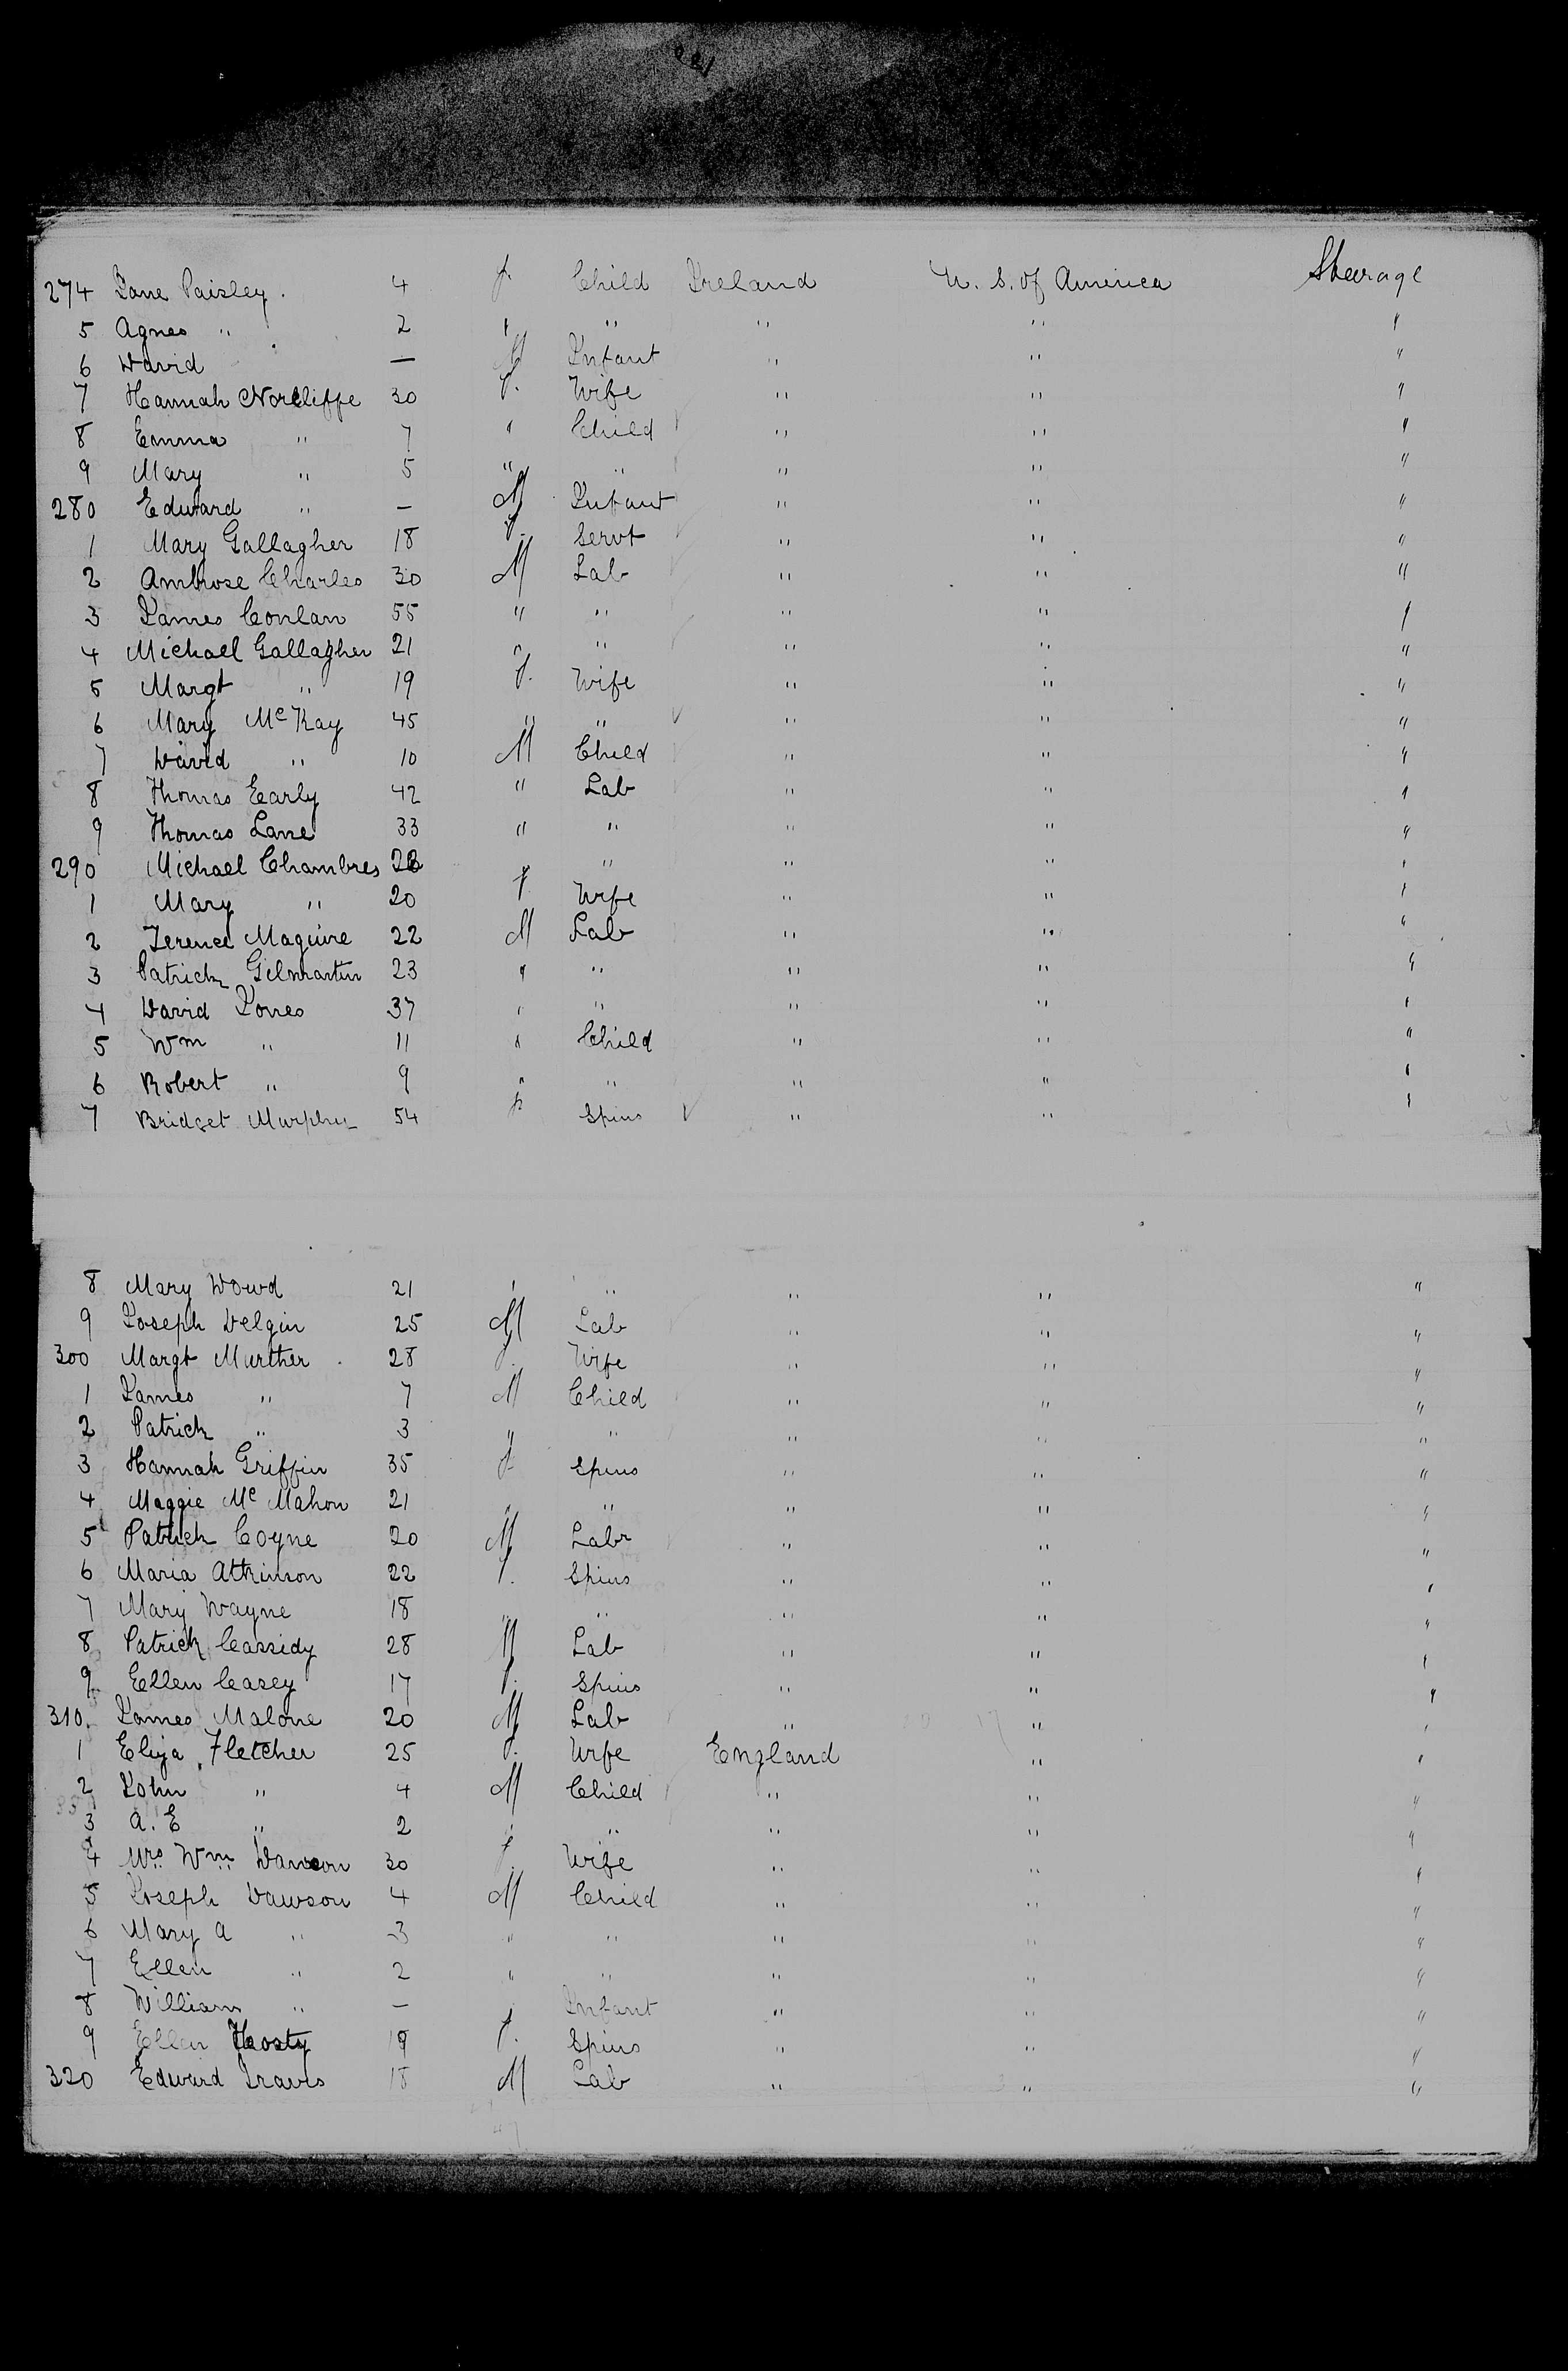 274 Jane Paisley. 4 f. Child Ireland U. S. of America Steerage
5 Agnes " 2 " " " " "
6 David — M Infant " " "
7 Hannah Norcliffe 30 f. Wife " " "
8 Emma " 7 " Child " " "
9 Mary " 5 " " " " "
280 Edward " — M Infant " " "
1 Mary Gallagher 18 f. Servt " " "
2 Ambrose Charles 30 M Lab " " "
3 James Conlan 55 " " " " "
4 Michael Gallagher 21 " " " " "
5 Margt " 19 f. Wife " " "
6 Mary McKay 45 " " " " "
7 David " 10 M Child " " "
8 Thomas Early 42 " Lab " " "
9 Thomas Lane 33 " " " " "
290 Michael Chambres " " " " "
1 Mary " 20 f. Wife " " "
2 Terence Maguire 22 M Lab " " "
3 Patrick Gilmartin 23 " " " " "
4 David Jones 37 " " " " "
5 Wm " 11 " Child " " "
6 Robert " 9 " " " " "
7 Bridget Murphy 54 f Spins " " "
8 Mary Dowd 21 " " " " "
9 Joseph Delgin 25 M Lab " " "
300 Margt Murther 28 f. Wife " " "
1 James " 7 M Child " " "
2 Patrick " 3 " " " " "
3 Hannah Griffin 35 f Spins " " "
4 Maggie Mc Mahon 21 " " " " "
5 Patrick Coyne 20 M Labr " " "
6 Maria Atkinson 22 f. Spins " " "
7 Mary Wayne 18 " " " " "
8 Patrick Cassidy 28 M Lab " " "
9 Ellen Casey 17 f. Spins " " "
310. James Malone 20 M Lab " " "
1 Eliza Fletcher 25 f. Wife England " "
2 John " 4 M Child " " "
3 A. E " 2 " " " " "
4 Mrs Wm Dawson 30 f. Wife " " "
5 Joseph Dawson 4 M Child " " "
6 Mary A " 3 " " " " "
7 Ellen " 2 " " " " "
8 William " — " Infant " " "
9 Ellen Hosty 19 f. Spins " " "
320 Edward Travis 18 M Lab " " "